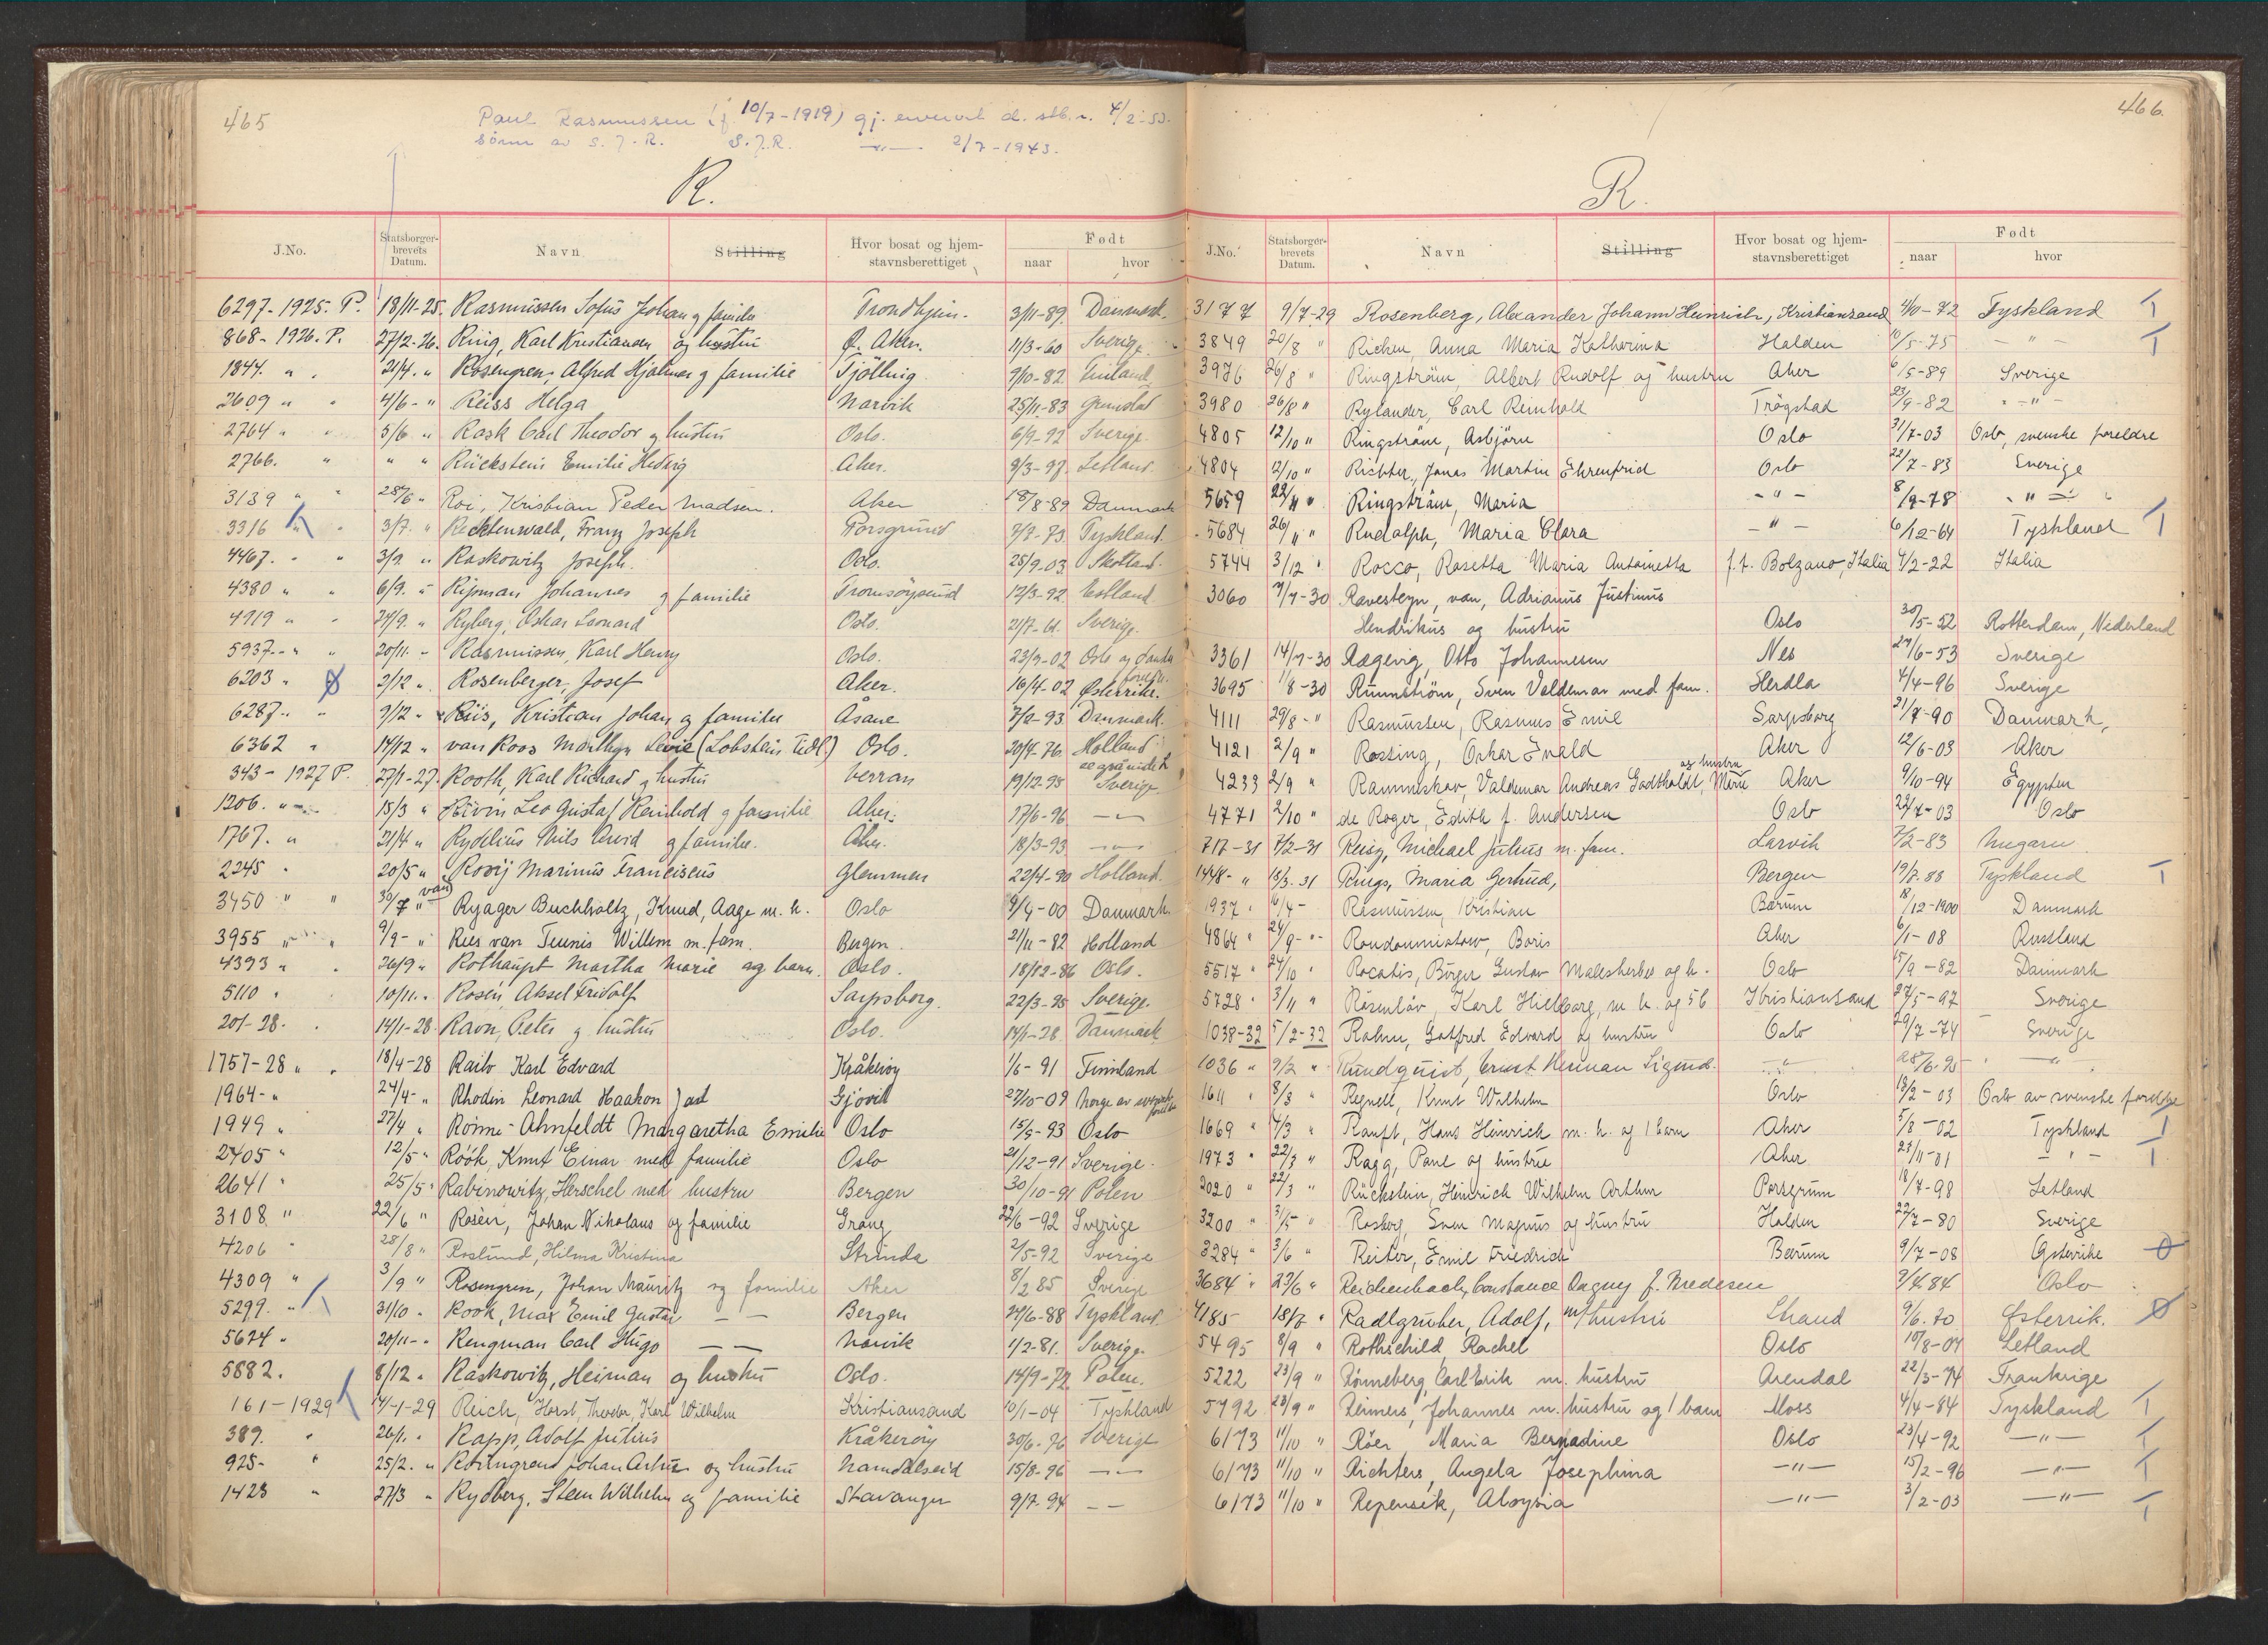 465
Paul Rasmussen (f. 10/7-1919) gj. ervervet d. stb. r. 4/2-53.
Sønn av S. J. R. S.J.R. —"— 2/7-1943.
R.
J.No. Statsborger-brevets Datum. Navn Stilling Hvor bosat og hjem-stavnsberettiget Født naar hvor
6297-1925. P. 18/11-25. Rasmussen Sofus Johan og familie Trondhjem. 3/11-89. Danmark.
868-1926. P. 27/2-26. Ring, Karl Kristiansen og hustru Ø. Aker. 11/3-60 Sverige.
1844. " . 21/4. " Rosengren, Alfred Hjalmar og familie Tjölling 9/10-82 Finland
2609 " " 4/6- " Reiss Helga Narvik 25/11-83 Grimstad
2764 " " 5/6 " Rask Carl Theodor og hustru Oslo. 6/9-92 Sverige.
2766. " " " Rückstein Emilie Hedvig Aker. 9/3-97. Letland.
3139 " " 28/6 " Roi, Kristian Peder Madsen. Aker 18/8-89 Danmark
3316 " " 3/7. " Recktenwald, Franz Joseph Porsgrund 7/8-73 Tyskland.
4467. " " 3/9. " Raskowitz Joseph. Oslo. 25/9-03 Skotland.
4380 " " 6/9. " Ripman Johannes og familie Tromsöysund 12/3-92 Estland
4919 " " 24/9. " Ryberg, Oskar Leonard Oslo. 21/7-61. Sverige.
5937. " " 20/11. " Rasmussen, Karl Henry Oslo. 23/3-02 Oslo og danske foreldre.
6203 " " 2/12 " Rosenberger, Josef Aker. 16/4-02 Østerrike.
6287. " 9/12 " Riis, Kristian Johan og familie Åsane 7/2-93 Danmark.
6362 " 14/12 " van Roos Marthyn Levie (Lobstein tidl.) Oslo. 20/4-76. Holland
343-1927 P. 27/1-27. Rooth, Karl Richard og hustru Verran 19/12-95 Sverige
1206. " 15/3 " Rivin Leo Gustaf Reinhold og familie Aker. 17/6-96 —"—
1767. " 21/4 " Rydelius Nils Arvid og familie. Aker. 18/3-93 —"—
2245 " 20/5 " van Rooij Marinus Franciscus Glemmen 22/4-90 Holland.
3450 " " 30/7 " Ryager Buchholtz, Knud, Aage m. h. Oslo 9/4-00 Danmark.
3955 " " 9/9- " Rees van Teunis Willem m. fam. Bergen. 21/11-82 Holland
4393 " " 26/9 " Rothaupt Martha Marie og barn. Oslo. 18/12-86 Oslo.
5110 " 10/11. " Rosén Aksel Fridolf Sarpsborg. 22/3-95 Sverige.
201-28. 14/1-28. Ravn, Peter og hustru Oslo. 14/1-28. Danmark
1757-28 " 18/4-28 Raito Karl Edvard Kråkeröy 1/6-91 Finnland
1964- " 24/4- " Rhodin Leonard Haakon Gjövik 27/10-09 Norge av svenske foreldre
1949 " 27/4 " Rönne-Ahnfeldt Margaretha Emilie Oslo 15/5-93 Oslo
2405 " 12/5 " Röök, Knut Einar med familie Oslo 21/12-91 Sverige.
2641 " 25/5 " Rabinowitz, Herschel med hustru Bergen 30/10-91 Polen
3108 " 22/6 " Rosèn, Johan Nikolaus og familie Grong 22/6-92 Sverige
4206 " 28/8 " Roslund, Hilma Kristina Strinda 2/5-92 Sverige
4309 " 3/9 " Rosengren, Johan Mauritz og familie Aker 8/2 85 Sverige
5299. " 31/10 " Rook, Max Emil Gustav — — Bergen 24/6-88 Tyskland
5674 " 20/11- " Rengman Carl Hugo — — Narvik 1/2-81. Sverige.
5882. 8/12 " Raskowitz, Heiman og hustru Oslo. 14/9-72 Polen.
161-1929 14/1-29 Reich, Horst, Theodor, Karl Wilhelm Kristiansand 10/1-04 Tyskland
389. " 26/1. " Rapp, Adolf Julius Kråkeröy 30/6-76 Sverige
925- " 25/2. " Rosengren Johan Arthur og hustru Namdalseid 15/8-96 —"—
1423 " 27/3 " Rydberg, Steen Wilhelm og familie Stavanger 9/7-94 — —
466.
R.
J.No. Statsborger-brevets Datum. Navn Stilling Hvor bosat og hjem-stavnsberettiget Født naar hvor
3177 9/7-29 Rosenberg, Alexander Johann Heinrich, Kristiansand 4/10-72 Tyskland T
3849 20/8 " Richen, Anna Maria Katherina Halden 10/5-75 — " — T
3976 26/8 " Ringström, Albert Rudolf og hustru Aker 6/5-89 Sverige
3980 26/8 " Rylander, Carl Reinhold Trögstad 23/9-82 — " —
4805 12/10 " Ringström, Asbjörn Oslo 31/7-03 Oslo, svenske foreldre
4804 12/10 " Richter, Jonas Martin Ehrenfrid Oslo 22/7-83 Sverige
5659 22/11 " Ringström, Maria — " — 8/9-78 — " —
5684 26/11 " Rudolph, Maria Clara — " — 6/12-64 Tyskland T
5744 3/12 " Rocco, Rosetta Maria Antoinetta f.t. Bolzano, Italia 4/2-22 Italia
3060 7/7-30 Ravesteyn, van, Adrianus Justinus
Hendrikus og hustru Oslo 30/5-52 Rotterdam, Nederland
3361 14/7-30 Rægevig, Otto Johannesen Nes 27/6-53 Sverige
3695 1/8-30 Rünnström, Sven Valdemar med fam. Herdla 4/4-96 Sverige
4111 29/8- " Rasmussen, Rasmus Emil Sarpsborg 21/7-90 Danmark,
4121 2/9 " Rossing, Oskar Evald Aker 12/6-03 Aker
4233 2/9 " Rammskov, Valdemar Andreas Godtholdt, Marie og hustru Aker 9/10-94 Egypten
4771 2/10 " de Roger, Edith f. Andersen Oslo 22/7-03 Oslo
717-31 7/2-31 Reisz, Michael Julius m. fam. Larvik 7/2-83 Ungarn
1448- " 18/3.31 Rings, Maria Gertrud, Bergen 19/7.88 Tyskland T
1937 " 10/4- Rasmussen, Kristian Bærum 18/12-1900 Danmark
4864 " 24/9- " Boris Aker 6/1-08 Russland
5517 " 24/10 " Rocatis, Börge Gustav Malesherbes og h. Oslo 15/9-82 Danmark
5728 " 3/11 " Rosenlöv, Karl Hielborg, m. h. og 5 b Kristiansand 27/5-97 Sverige
1038-32 5/2-32 Rahm, Gotfred Edvard og hustru Oslo 29/7-74 Sverige
1036 " 9/2 " Rundquist, Ernst Herman Sigmd. —"— 28/6-95 —"—
1611 " 8/3 " Regnell, Knut Wilhelm Oslo 18/2-03 Oslo av svenske foreldre
1669 " 14/3 " Ranft, Hans Heinrich m. h. og 1 barn Aker 5/8-02 Tyskland T
1973 " 22/3 " Ragg, Paul og hustru Aker 27/11-01 — " — T
2020 " 22/3 " Rückstein, Heinrich Wilhelm Arthur Porsgrunn 18/7-98 Letland
3200 " 31/5 " Rosberg, Sven Magnus og hustru Halden 22/7-80 Sverige
3284 " 3/6 " Reiter, Emil Friedrich Bærum 9/7-08 Østerrike
3684 " 23/6 " Reichenbach, Constance Dagny f. Oslo
4185 18/7 " Radlgruber, Adolf, m/hustru Strand 9/6.70 Østerrik.
5495 8/9 " Rothschild, Rachel Oslo 10/8-04 Letland
5222 23/9 " Rönneberg, Carl Erik m. hustru Arendal 22/3-74 Frankrige
5792 28/9 " Reimers, Johannes m. hustru og 1 barn Moss 4/4-84 Tyskland T
6173 11/10 " Röer, Maria Bernadine Oslo 23/4-92 —"— T
6173 11/10 " Richters, Angela Josephina —"— 15/2-96 —"— T
6173 11/10 " Repensek, Aloysia —"— 3/2-03 —"— T